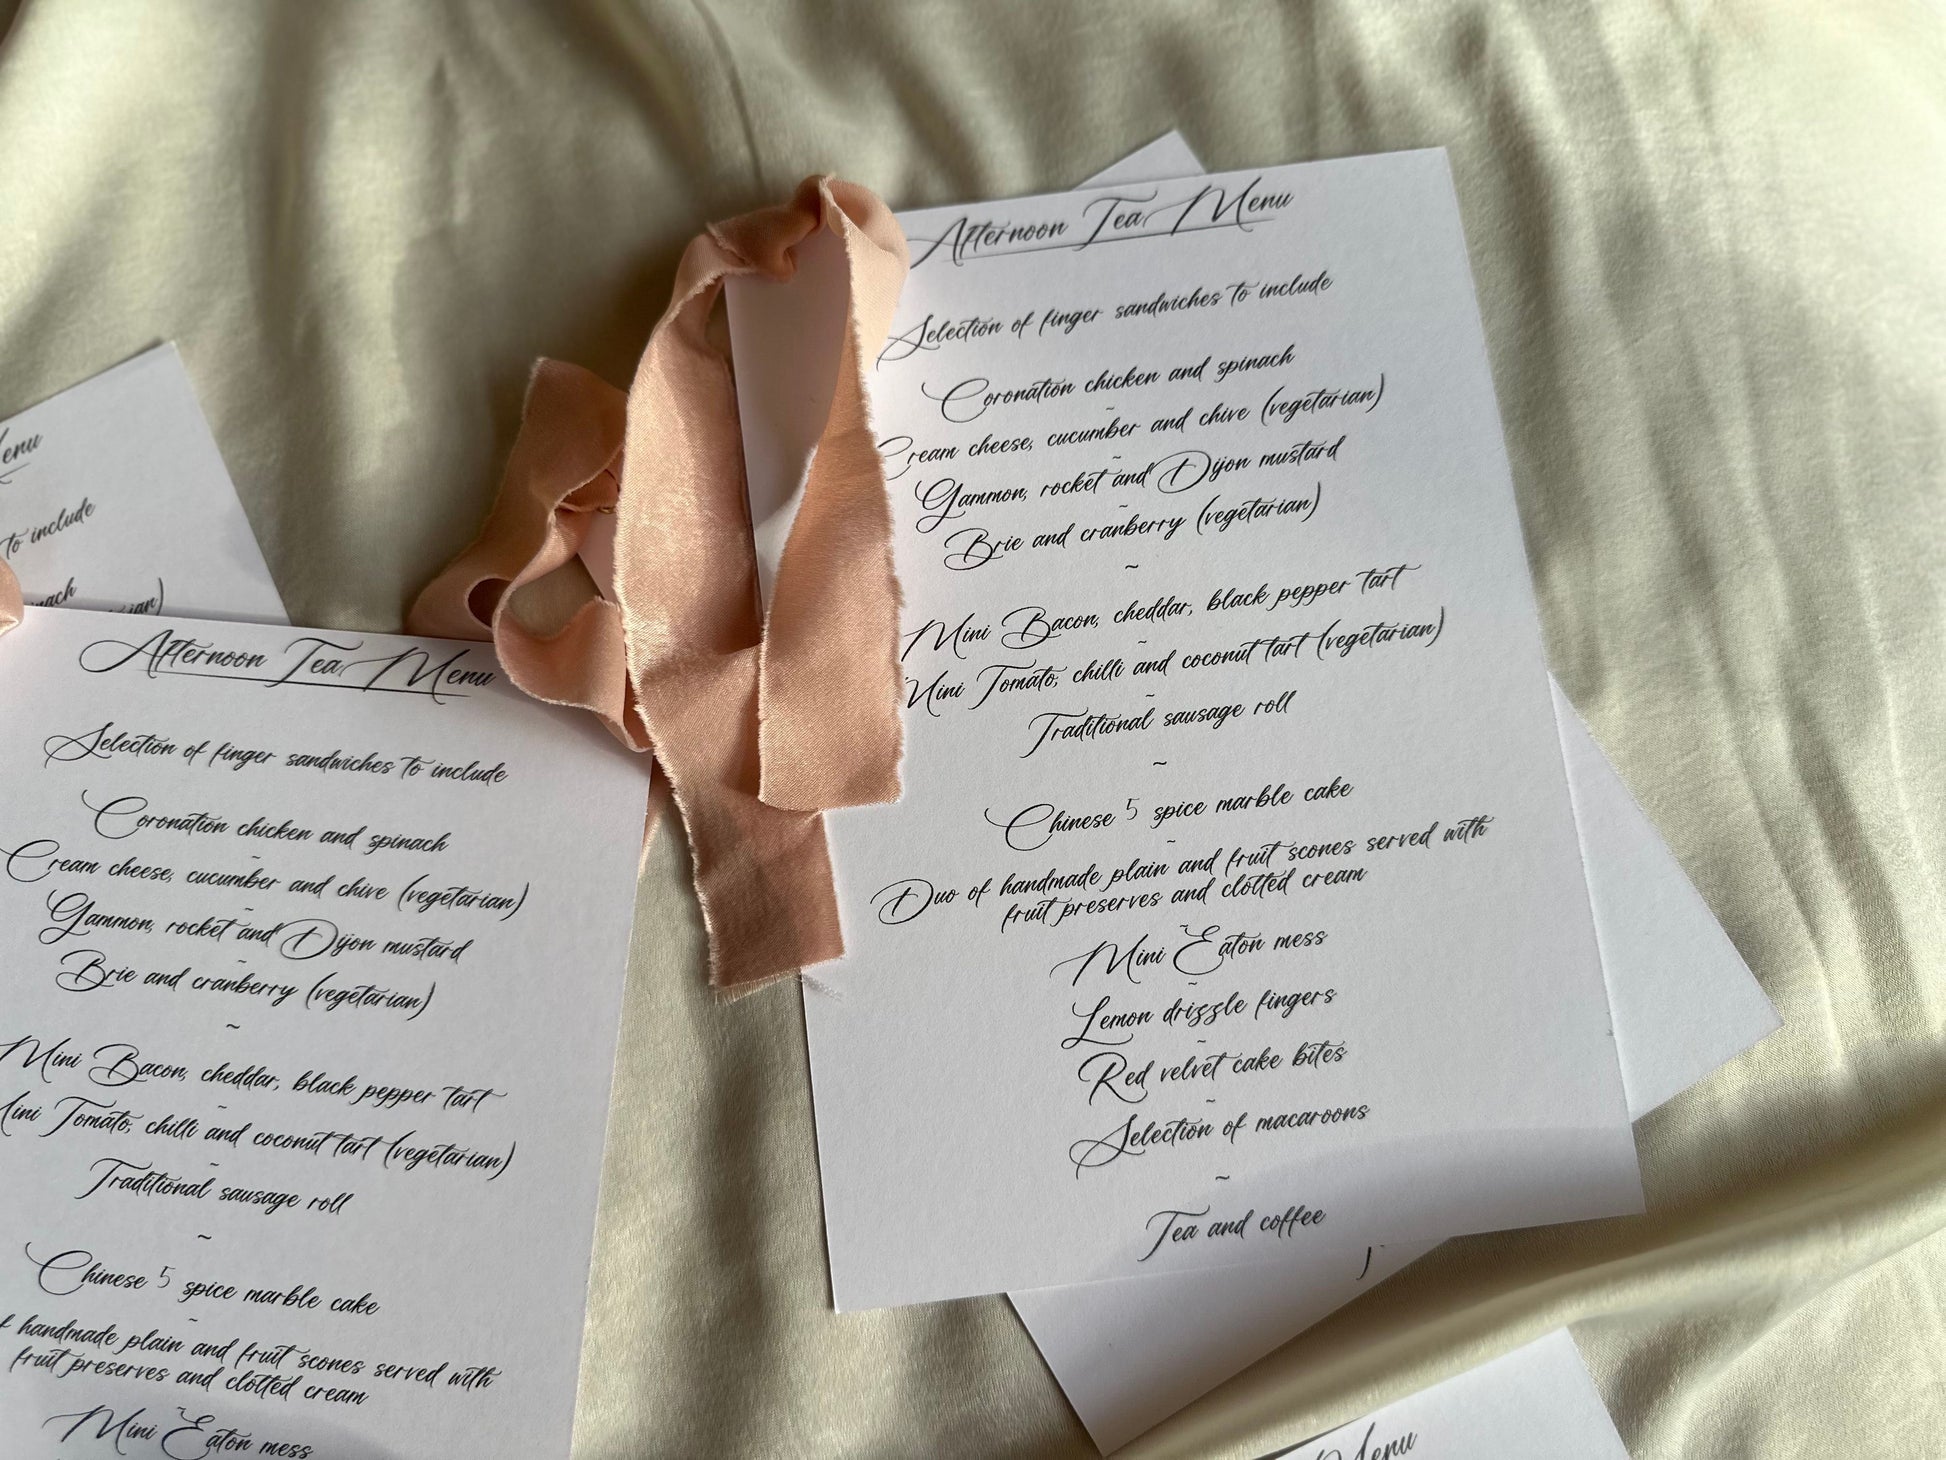 Afternoon Tea Menu
Selection of finger sandwiches to include
Coronation chicken and spinach
~
Cream cheese, cucumber and chive (vegetarian)
~
Gammon, rocket and Dijon mustard
~
Brie and cranberry (vegetarian)
~
Mini Bacon, cheddar, black pepper tart
~
Mini Tomato, chilli and coconut tart (vegetarian)
~
Traditional sausage roll
~
Chinese 5 spice marble cake
~
Duo of handmade plain and fruit scones served with
fruit preserves and clotted cream
~
Mini Eaton mess
~
Lemon drizzle fingers
~
Red velvet cake bites
~
Selection of macaroons
~
Tea and coffee
enu
to include
nach
ian)
Afternoon Tea Menu
Selection of finger sandwiches to include
Coronation chicken and spinach
~
Cream cheese, cucumber and chive (vegetarian)
~
Gammon, rocket and Dijon mustard
~
Brie and cranberry (vegetarian)
~
Mini Bacon, cheddar, black pepper tart
~
Mini Tomato, chilli and coconut tart (vegetarian)
~
Traditional sausage roll
~
Chinese 5 spice marble cake
~
f handmade plain and fruit scones served with
fruit preserves and clotted cream
~
Mini Eaton mess
Menu